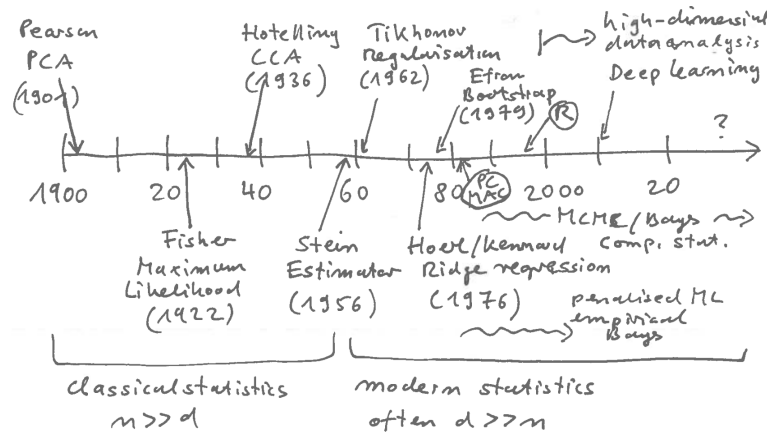 Pearson
PCA
(1901)
Hotelling
CCA
(1936)
Tikhonov
Regularisation
(1962)
Efron
Bootstrap
(1979)
R
high-dimensional
data analysis
Deep learning
?
1900
20
40
60
80
2000
20
PC
MAC
MCMC/Bays
comp. stat.
Fisher
Maximum
Likelihood
(1922)
Stein
Estimator
(1956)
Hoerl/Kennard
Ridge regression
(1976)
penalised ML
empirical
Bays
classical statistics
n>>d
modern statistics
often d>>n